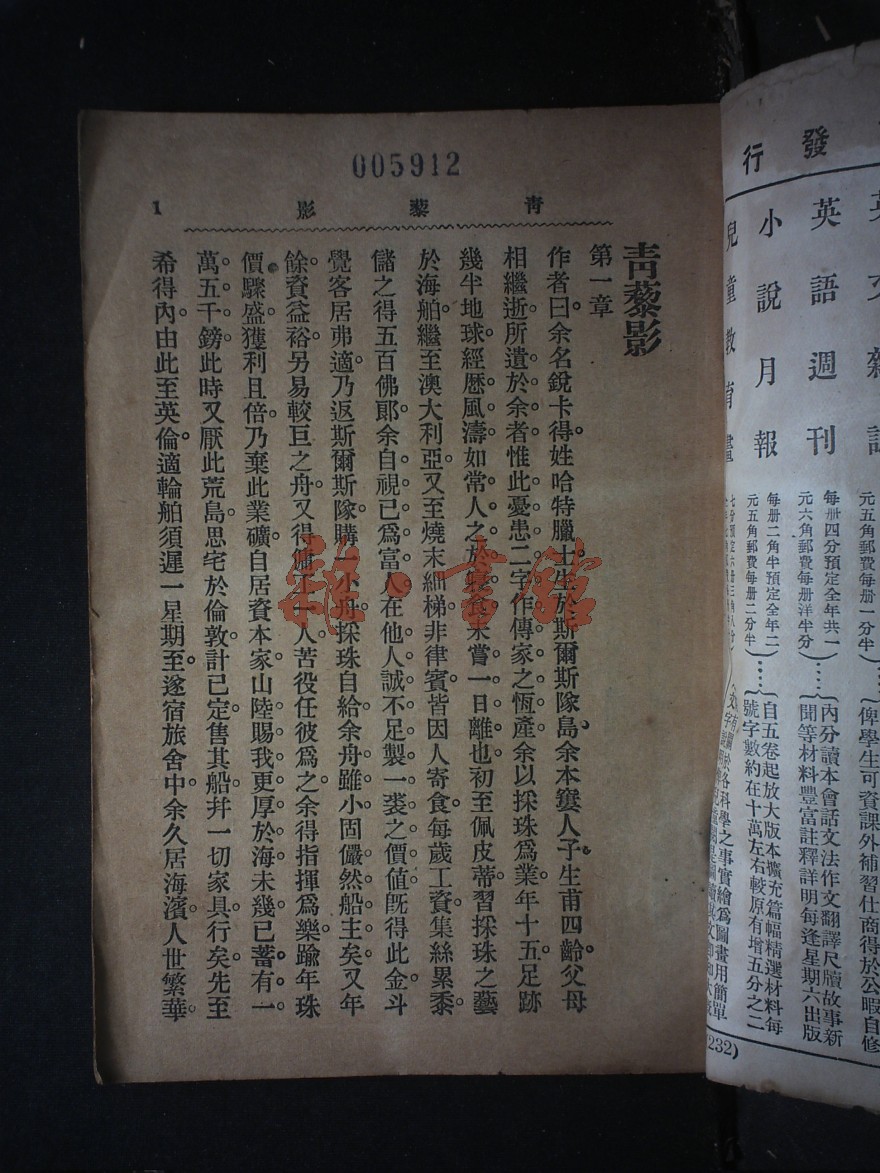 005912
青藜影 1
青藜影
第一章
作者曰。余名銳卡得。姓哈特臘。士生於斯爾斯隊島。余本窶人子。生甫四齡。父母
相繼逝。所遺於余者。惟此憂患二字。作傳家之恆產。余以採珠爲業。年十五。足跡
幾半地球。經歷風濤。如常人之於寢食。未嘗一日離也。初至佩皮蒂。習採珠之藝
於海舶。繼至澳大利亞。又至燒末細梯非律賓。皆因人寄食。每歲工資。集絲累黍。
儲之得五百佛郎。余自視已爲富人。在他人誠不足製一裘之價值。旣得此金。斗
覺客居弗適。乃返斯爾斯隊。購一小舟。採珠自給。余舟雖小。固儼然船主矣。又年
餘。資益裕。另易較巨之舟。又得傭工一人。苦役任彼爲之。余得指揮爲樂。踰年珠
價驟盛。獲利且倍。乃棄此業礦。自居資本家。山陸賜我。更厚於海。未幾已蓄有一
萬五千鎊。此時又厭此荒島。思宅於倫敦。計已定。售其船幷一切家具行矣。先至
希得內。由此至英倫。適輪船須遲一星期至。遂宿旅舍中。余久居海濱。人世繁華
發行
英文雜誌
元五角郵費每册一分半
俾學生可資課外補習仕商得於公暇自修
英語週刊
每册四分預定全年共一
元六角郵費每册洋半分
內分讀本會話文法作文翻譯尺牘故事新
聞等材料豐富註釋詳明每逢星期六出版
小說月報
每册二角半預定全年二
元五角郵費每册二分半
自五卷起放大版本擴充篇幅精選材料每
號字數約在十萬左右較原有增五分之二
兒童教育畫
各科學之事實繪爲圖畫用簡單
(232)
雜·書館